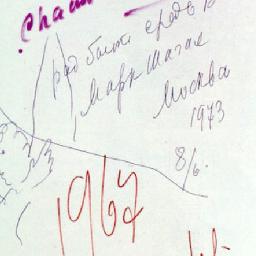 Chau
рад быть среди
Марк Шагал
Москва
1973
8/6.
1967